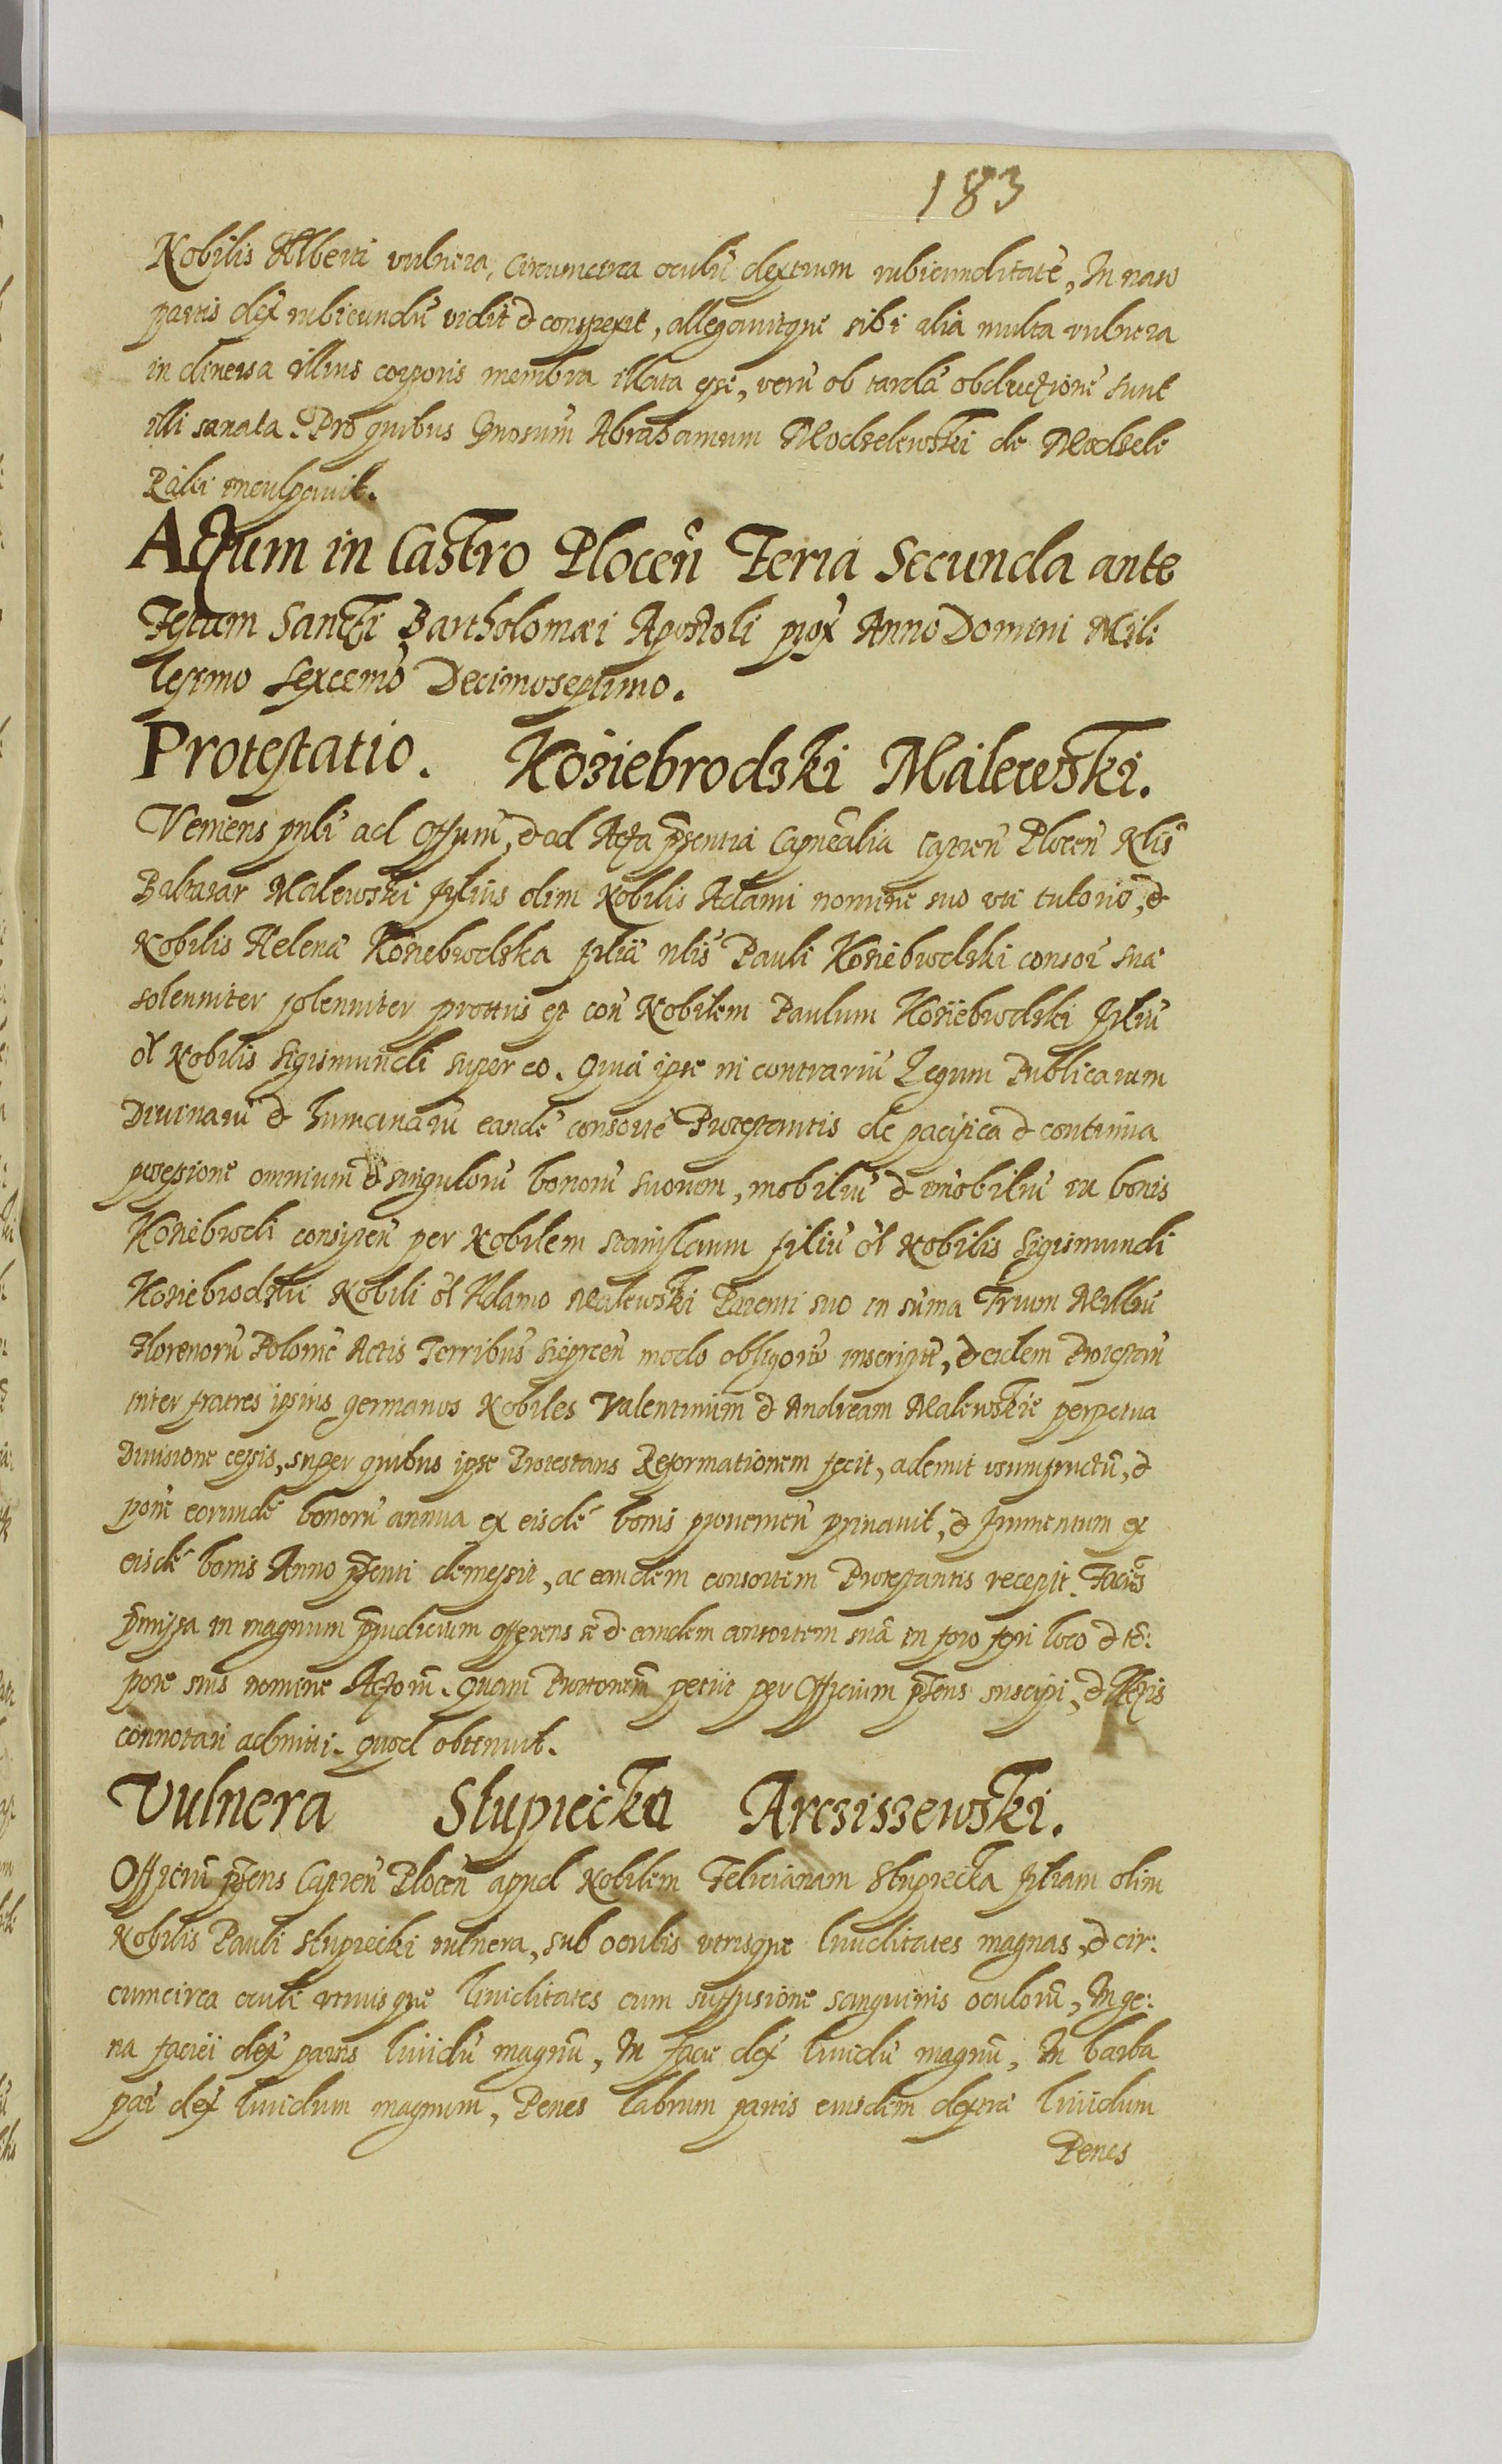 183
Nobilis Alberti vulnera, Circumcirca oculū dextrum rubicunditatē, In naso
partis dex̄ rubicundū vidit & conspexit, allegavitque sibi alia multa vulnera
in diversa illius corporis membra illata esse, verū ob tardā obductionē sunt
illi sanata. Pro quibus Gnosum Abrahamum Modzelewski de Modzele
inculpavit.
Actum in Castro Plocen̄ Feria Secunda ante
Festum Sancti Bartholomæi Apostoli prox̄ Anno Domini Mil:
lesimo Sexcentō Decimoseptimo.
Protestatio. Kosiebrodzki Malewski.
Veniens pnlr̄ ad Offum, & ad Acta pn̄sentia Capnēalia Castren̄ Plocen̄ Nlis
Baltazar Malewski filius olim Nobilis Adami nomine suo uti tutorio, &
Nobilis Helenæ Kosiebrodzka filiæ nlis Pauli Kosiebrodzki consor̄ suæ
solenniter solenniter prottus est con̄ Nobilem Paulum Kosiebrodzki filiū
ol̄ Nobilis Sigismundi super eo. Quia ipse in contrariū Legum Publicarum
Divinarū & humanarū eandē consortē Protestantis de pacifica & continua
possessione omnium & singulorū bonorū suorum, mobiliū & imobiliū in bonis
Kosiebrodi consisten̄ per Nobilem Stanislaum filiū ol̄ Nobilis Sigismundi
Kosiebrodzki Nobili ol̄ Adamo Malewski Parenti suo in sūma Trium Milliū
Florenorū Polonic̄ Actis Terribus̄ Siepcen̄ modo obligorio inscriptis, & eidem Protestan̄
inter fratres ipsius germanos Nobiles Valentinum & Andream Malewskie perpetua
Divisione cessis, super quibus ipse Protestans Reformationem fecit, ademit usumfructū, &
eorundē bonorū annua ex eisdē bonis provenien̄ privavit, & frumentum ex
eisdē bonis Anno pn̄senti demessuit, ac eandem consortem Protestantis recepit. Facien̄s
pr̄missa in magnum pr̄judicium offerens se & eandem consortem suā in foro fori loco & tē:
pore suis nomine Actorum. Quam Prottonem petiit per Officium pn̄sens suscipi, & Actis
connotari admitti. quod obtinuit.
Vulnera Słupiecka Arcziszewski.
Officiū pn̄sens Castren̄ Plocen̄ apud Nobilem Felicianam Słupiecka filiam olim
Nobilis Pauli Słupiecki vulnera, sub oculis utrisque lividitates magnas, & cir:
cumcirca oculi utriusque lividitates cum suffusione sanguinis oculorū, In ge:
na faciei dex̄ partis lividū magnū, In facie dex̄ lividū magnū, In barba
par̄ dex̄ lividum magnum, Penes labrum partis eiusdem dextræ lividum
Penes